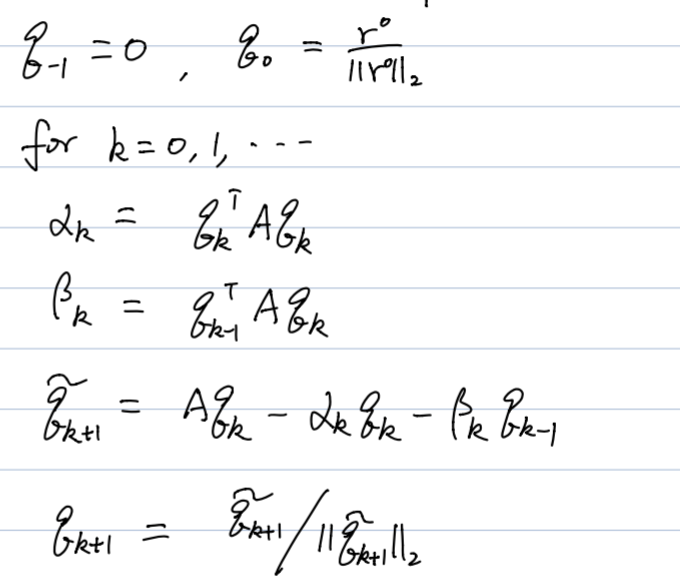 q₋₁ = 0 , q₀ = r⁰ / ||r⁰||₂
for k = 0, 1, ...
αₖ = qₖᵀ A qₖ
βₖ = qₖ₋₁ᵀ A qₖ
q̃ₖ₊₁ = A qₖ - αₖ qₖ - βₖ qₖ₋₁
qₖ₊₁ = q̃ₖ₊₁ / ||q̃ₖ₊₁||₂